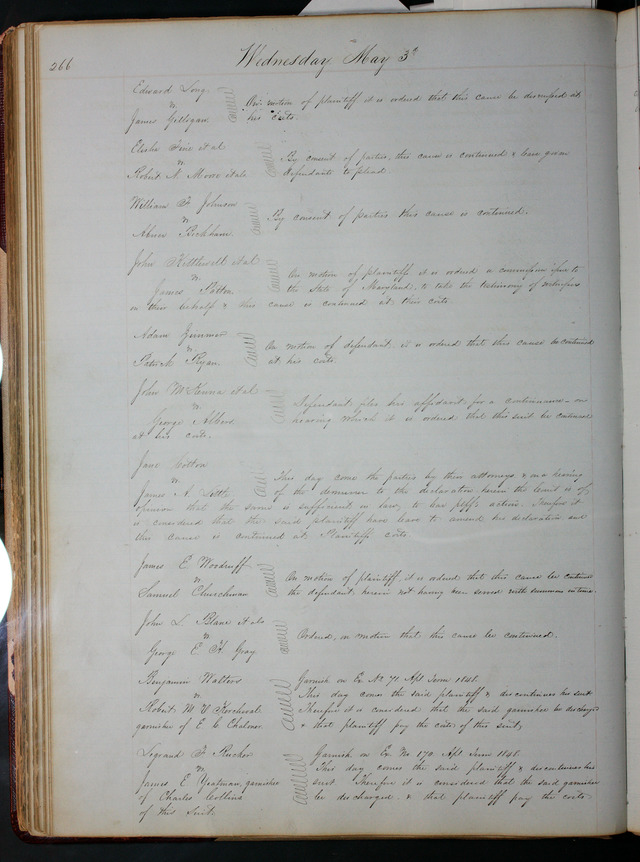 266
Wednesday May 3d
Edward Long
vs
James Gilligan
On motion of plaintiff it is ordered that this cause be dismissed at
his costs.
Elisha et al
vs
Robert A. Moore et als
By consent of parties, this cause is continued & leave given
defendants to plead.
William F. Johnson
vs
Abner
By consent of parties this cause is continued.
John Kettlewell et al
vs
James Sutton
On motion of plaintiff it is ordered a commission issue to
the State of Maryland, to take the testimony of witnesses
on their behalf & this cause is continued at their costs.
Adam
vs
Peter A. Ryan
On motion of defendant it is ordered that this cause be continued
at his costs.
John McKenna et al
vs
George Albers
Defendant files his affidavit for a continuance on
hearing which it is ordered that this suit be continued
at his costs.
Jane Cotton
vs
James A. Little
This day come the parties by their attorneys & on a hearing
of the demurrer to the declaration herein the Court is of
opinion that the same is sufficient in law, to bar plff's action. Therefore it
is considered that the said plaintiff have leave to amend her declaration and
this cause is continued at Plaintiff's costs.
James E. Woodruff
vs
Samuel Churchman
On motion of plaintiff, it is ordered that this cause be continued
the defendant herein not having been served with summons in time
John L. Blaine et als
vs
George E. H. Gray
Ordered, on motion that this cause be continued.
Benjamin Walters
vs
Robert M.
garnishee of E. C. Chalmer
Garnish on Ex No 71 Apl Term 1848.
This day comes the said plaintiff & discontinues his suit
Therefore it is considered that the said garnishee be discharged
& that plaintiff pay the costs of this suit,
Legrand F. Rucker
vs
James E. Yeatman, garnishee
of Charles Collins
Garnish on Ex. No 170. Apl Term 1848.
This day comes the said plaintiff & discontinues his
suit. Therefore it is considered that the said garnishee
be discharged & that plaintiff pay the costs
of this Suit.